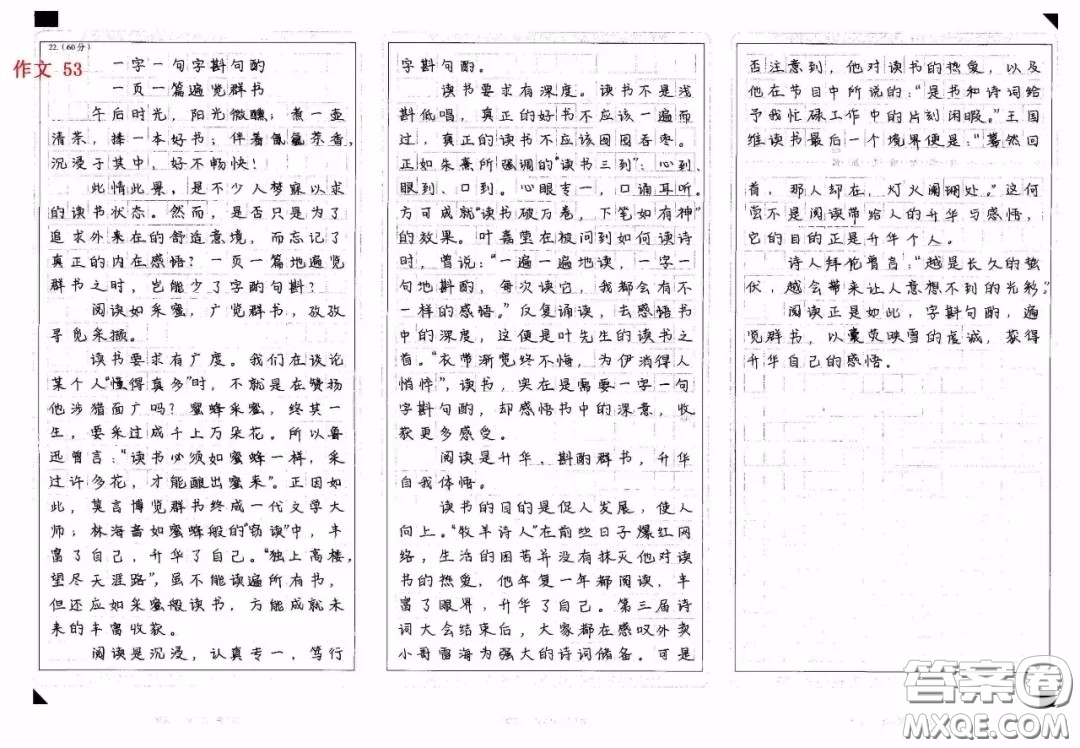 22.（60分）
作文 53
一字一句字斟句酌
一页一篇遍览群书
午后时光，阳光微醺；煮一壶
清茶，捧一本好书；伴着氤氲茶香，
沉浸于其中，好不畅快！
此情此景，是不少人梦寐以求
的读书状态。然而，是否只是为了
追求外来在的舒适意境，而忘记了
真正的内在感悟？一页一篇地遍览
群书之时，岂能少了字酌句斟？
阅读如采蜜，广览群书，孜孜
寻觅采撷。
读书要求有广度。我们在谈论
某个人“懂得真多”时，不就是在赞扬
他涉猎面广吗？蜜蜂采蜜，终其一
生，要采过成千上万朵花。所以鲁
迅曾言：“读书必须如蜜蜂一样，采
过许多花，才能酿出蜜来”。正因如
此，莫言博览群书终成一代文学大
师；林海音如蜜蜂般的“窃读”中，丰
富了自己，升华了自己。“独上高楼，
望尽天涯路”，虽不能读遍所有书，
但还应如采蜜般读书，方能成就未
来的丰富收获。
阅读是沉浸，认真专一，笃行
字斟句酌。
读书要求有深度。读书不是浅
斟低唱，真正的好书不应该一遍而
过，真正的读书不应该囫囵吞枣。
正如朱熹所强调的“读书三到”：心到、
眼到、口到。心眼专一，口诵耳听，
方可成就“读书破万卷，下笔如有神”
的效果。叶嘉莹在被问到如何读诗
时，曾说：“一遍一遍地读，一字一
句地斟酌，每次读它，我都会有不
一样的感悟”。反复诵读，去感悟书
中的深度，这便是叶先生的读书之
道。“衣带渐宽终不悔，为伊消得人
憔悴”，读书，实在是需要一字一句
字斟句酌，却感悟书中的深意，收
获更多感受。
阅读是升华，斟酌群书，升华
自我体悟。
读书的目的是促人发展，使人
向上。“牧羊诗人”在前些日子爆红网
络，生活的困苦并没有抹灭他对读
书的热爱，他年复一年都阅读，丰
富了眼界，升华了自己。第三届诗
词大会结束后，大家都在感叹外卖
小哥雷海为强大的诗词储备。可是
否注意到，他对读书的热爱，以及
他在节目中所说的：“是书和诗词给
予我忙碌工作中的片刻闲暇。”王国
维读书最后一个境界便是：“蓦然回
首，那人却在，灯火阑珊处。”这何
尝不是阅读带给人的升华与感悟，
它的目的正是升华个人。
诗人拜伦曾言：“越是长久的蛰
伏，越会带来让人意想不到的光彩。”
阅读正是如此，字斟句酌，遍
览群书，以囊萤映雪的虔诚，获得
升华自己的感悟。
答案圈
MXQE.COM